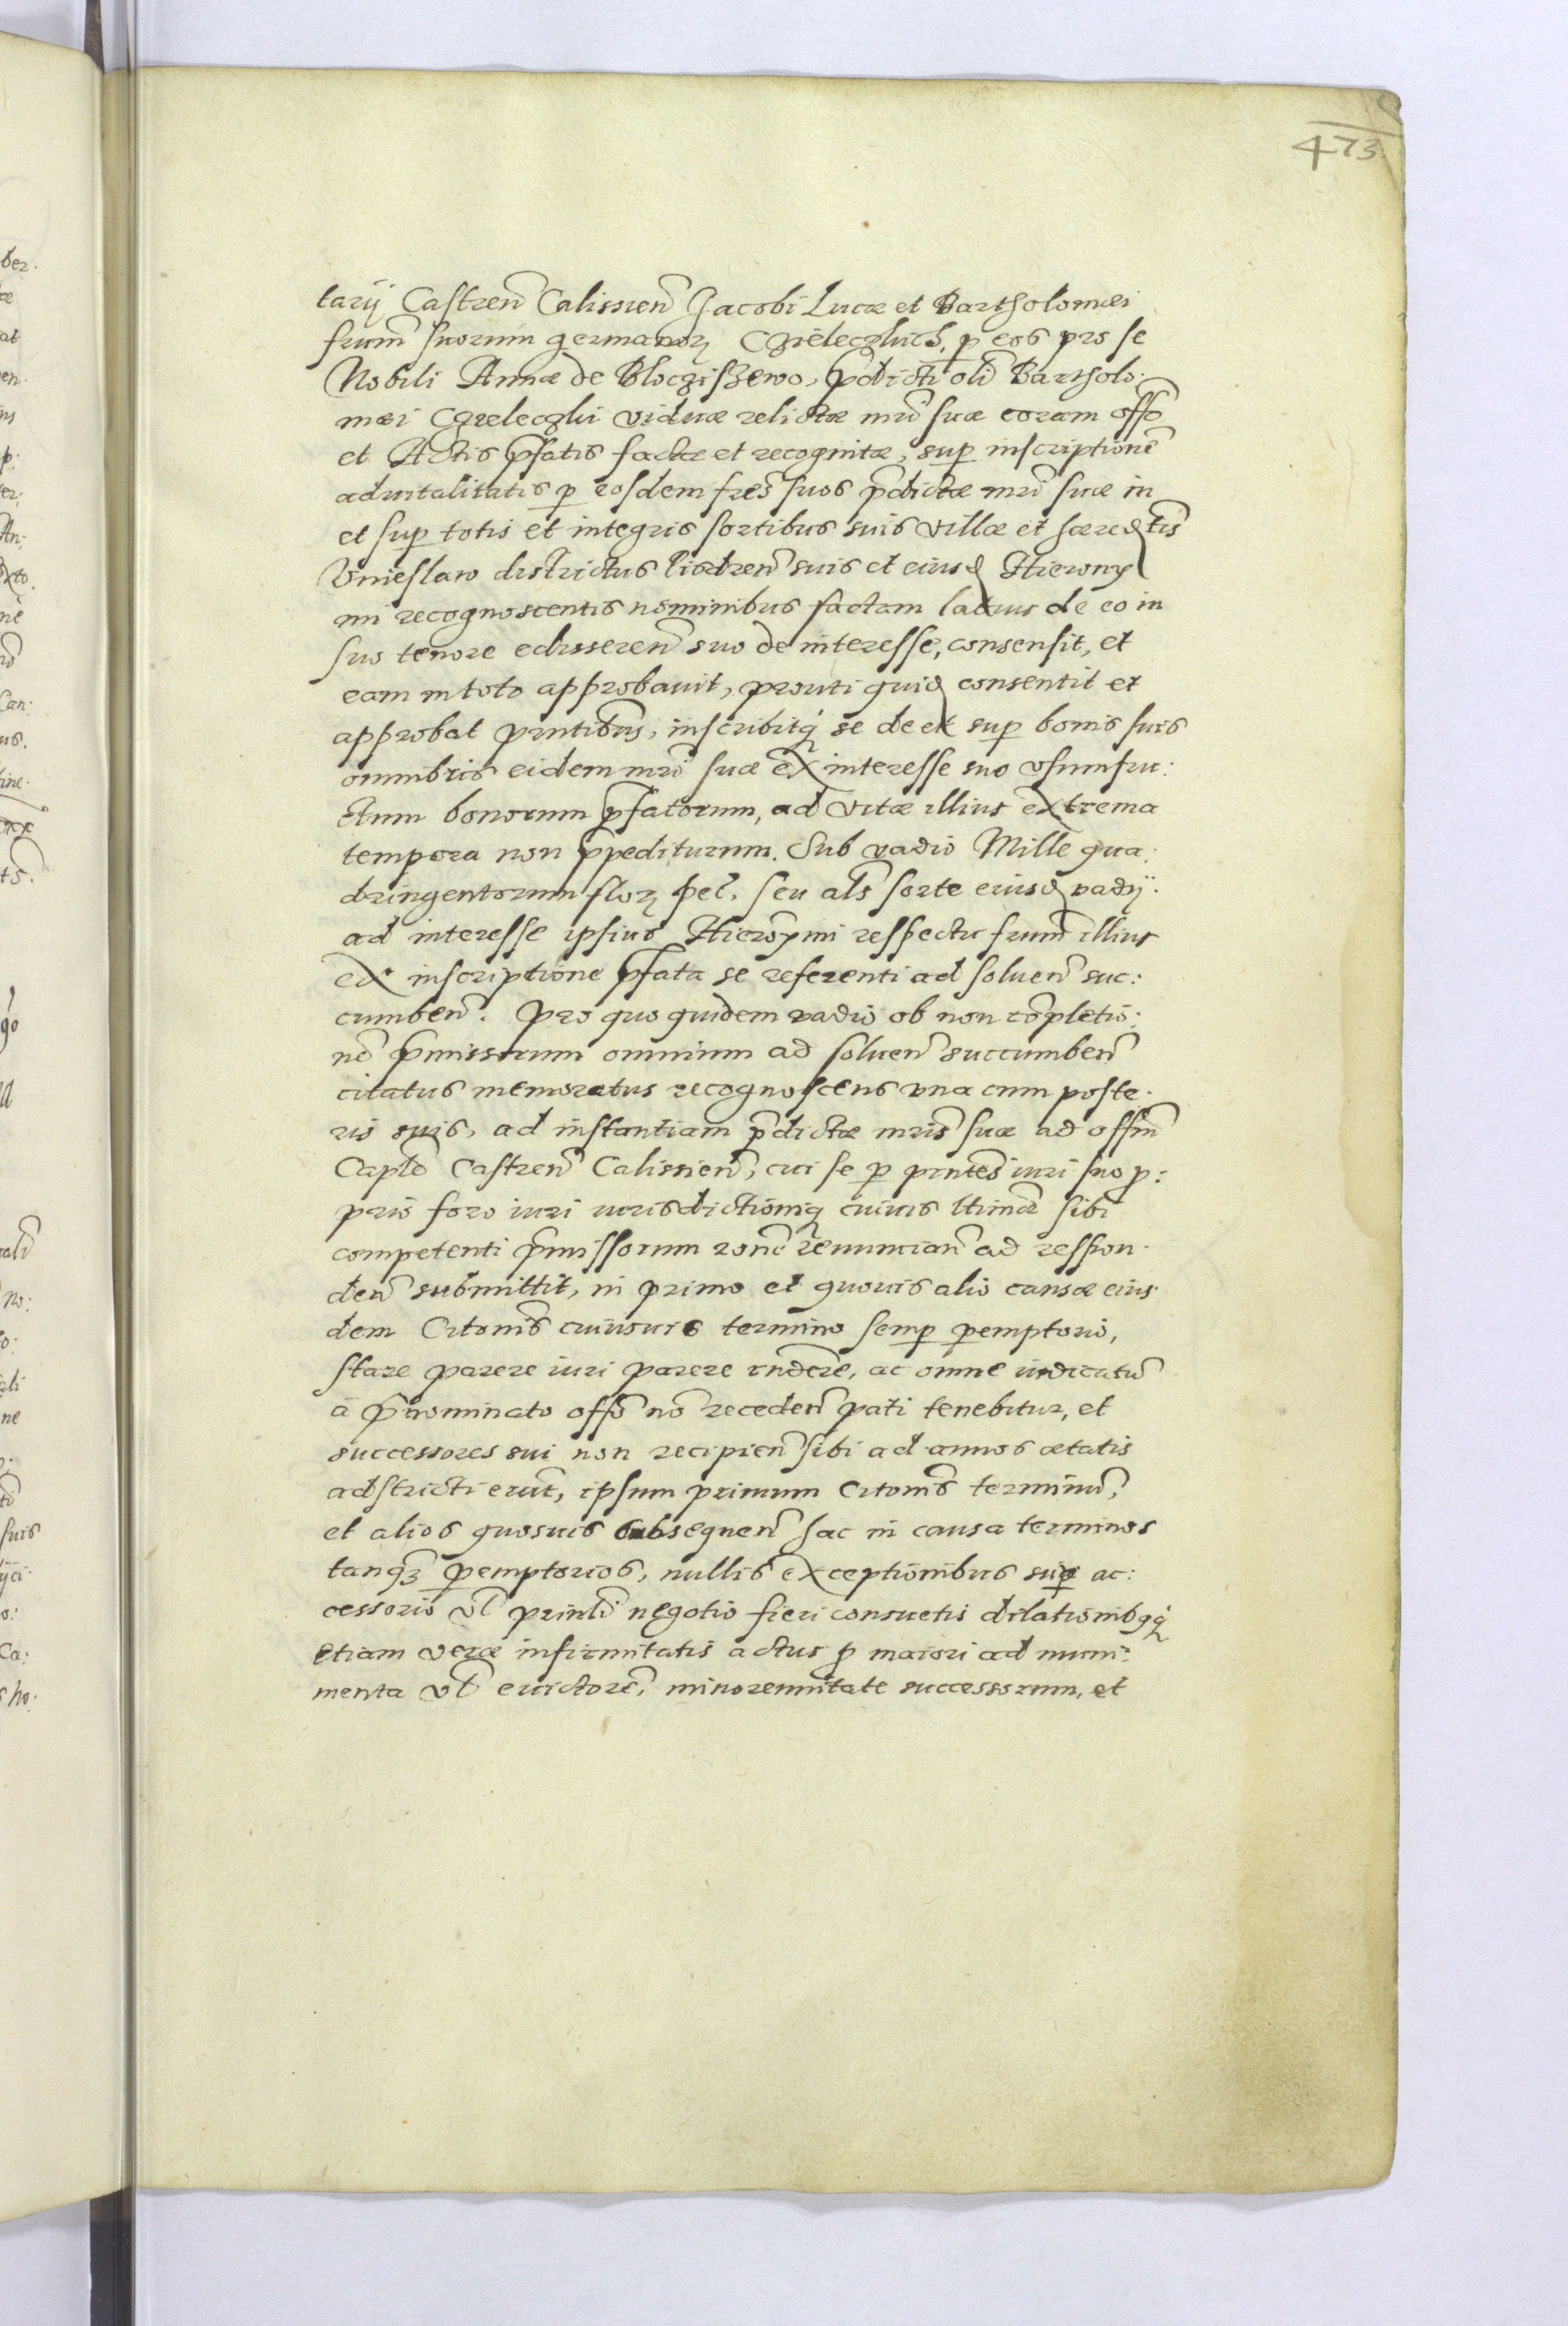 473
tarij Castren̄ Calissien̄ Jacobi Lucæ et Bartholomæi
frum̄ suorum germanorꝝ Czeleczkich, ꝑ eos pro se
Nobili Annæ de Bloczißewo, p̄dicti oli̅ Bartholo:
mæi Czeleczki viduæ relictæ mr̄i suæ coram off̅o
et Actis p̄fatis factæ et recognitæ, suꝑ inscriptione̅
aduitalitatis ꝑ eosdem fres̄ suos p̄dictæ mr̄i suæ in
et suꝑ totis et integris sortibus suis villæ et hæredtis̄
Vnieslaw districtus
mi recognoscentis nominibus factam latius de eo in
suo tenore edisseren̄ suo de interesse, consensit, et
eam in toto approbauit, prouti quid consentit et
approbat prntibus̄, inscribitqꝫ se de et suꝑ bonis suis
omnibus eidem mr̄i suæ ex interesse suo vsumfru:
ctum bonorum p̄fatorum, ad vitæ illius extrema
tempora non p̄pediturum. Sub vadio Mille qua:
dringentorum florꝝ pel. seu als̄ sorte eiusd vadij.
ad interesse ipsius Hieronymi respectu frum̄ illius
ex inscriptione p̄fata se referenti ad soluen̄ suc:
cumben̄. Pro quo quidem vadio ob non co̅pletio:
ne̅ p̄missorum omnium ad soluen̄ succumben̄
citatus memoratus recognoscens vna cum poste:
ris suis, ad instantiam p̄dictæ mris̄ suæ ad offm̄
Capl̄e Castren̄ Calissien̄, cui se ꝑ pntes̄ iuri suo ꝓ:
prio foro iuri iurisdictioniqꝫ cuiuis
competenti p̄missorum rone̅ renuncian̄ ad respon:
den̄ submittit, in primo et quouis alio causæ eius:
dem Citonis̄ cuiusuis termino semꝑ ꝑemptorio,
stare parere iuri parere rndere̅, ac omne iudicatu̅
à p̄nominato off̅o no̅ receden̄ pati tenebitur, et
successores sui non recipien̄ sibi ad annos ætatis
adstricti erut̅, ipsum primum Citonis̄ terminu̅,
et alios quosuis subsequen̄ hac in causa terminos
tanqꝫ ꝑemptorios, nullis exceptionibus supe ac:
cessorio vl̄ prinli̅ negotio fieri consuetis dilationibqꝫ
etiam veræ infirmitatis actus ꝓ maiori ad muni:
menta vl̄ euictore̅, minorennitate successorum, et